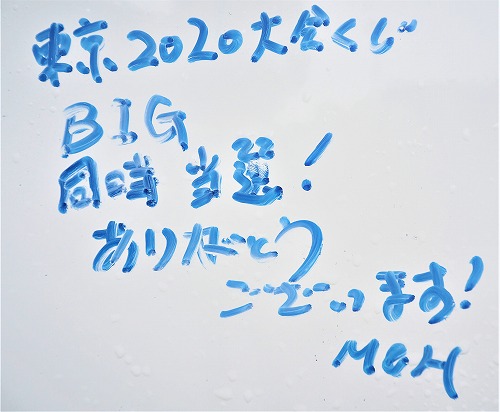 東京2020大会くじ
BIG
同時当選！
ありがとう
ございます！
MGM